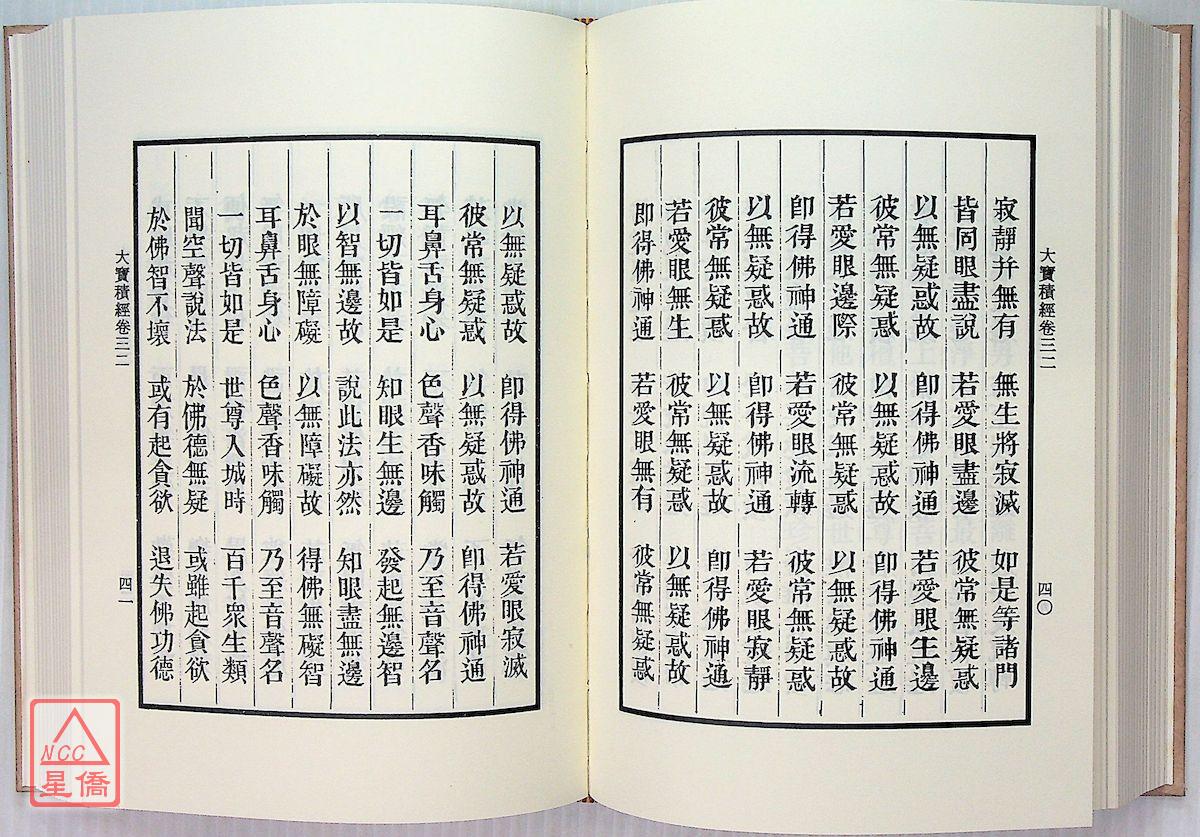 大寶積經卷三二
四〇
寂靜并無有 無生將寂滅 如是等諸門
皆同眼盡說 若愛眼盡邊 彼常無疑惑
以無疑惑故 卽得佛神通 若愛眼生邊
彼常無疑惑 以無疑惑故 卽得佛神通
若愛眼邊際 彼常無疑惑 以無疑惑故
卽得佛神通 若愛眼流轉 彼常無疑惑
以無疑惑故 卽得佛神通 若愛眼寂靜
彼常無疑惑 以無疑惑故 卽得佛神通
若愛眼無生 彼常無疑惑 以無疑惑故
即得佛神通 若愛眼無有 彼常無疑惑
以無疑惑故 卽得佛神通 若愛眼寂滅
彼常無疑惑 以無疑惑故 卽得佛神通
耳鼻舌身心 色聲香味觸 乃至音聲名
一切皆如是 知眼生無邊 發起無邊智
以智無邊故 說此法亦然 知眼盡無邊
於眼無障礙 以無障礙故 得佛無礙智
耳鼻舌身心 色聲香味觸 乃至音聲名
一切皆如是 世尊入城時 百千衆生類
聞空聲說法 於佛德無疑 或雖起貪欲
於佛智不壞 或有起貪欲 退失佛功德
大寶積經卷三二
四一
NCC
星僑